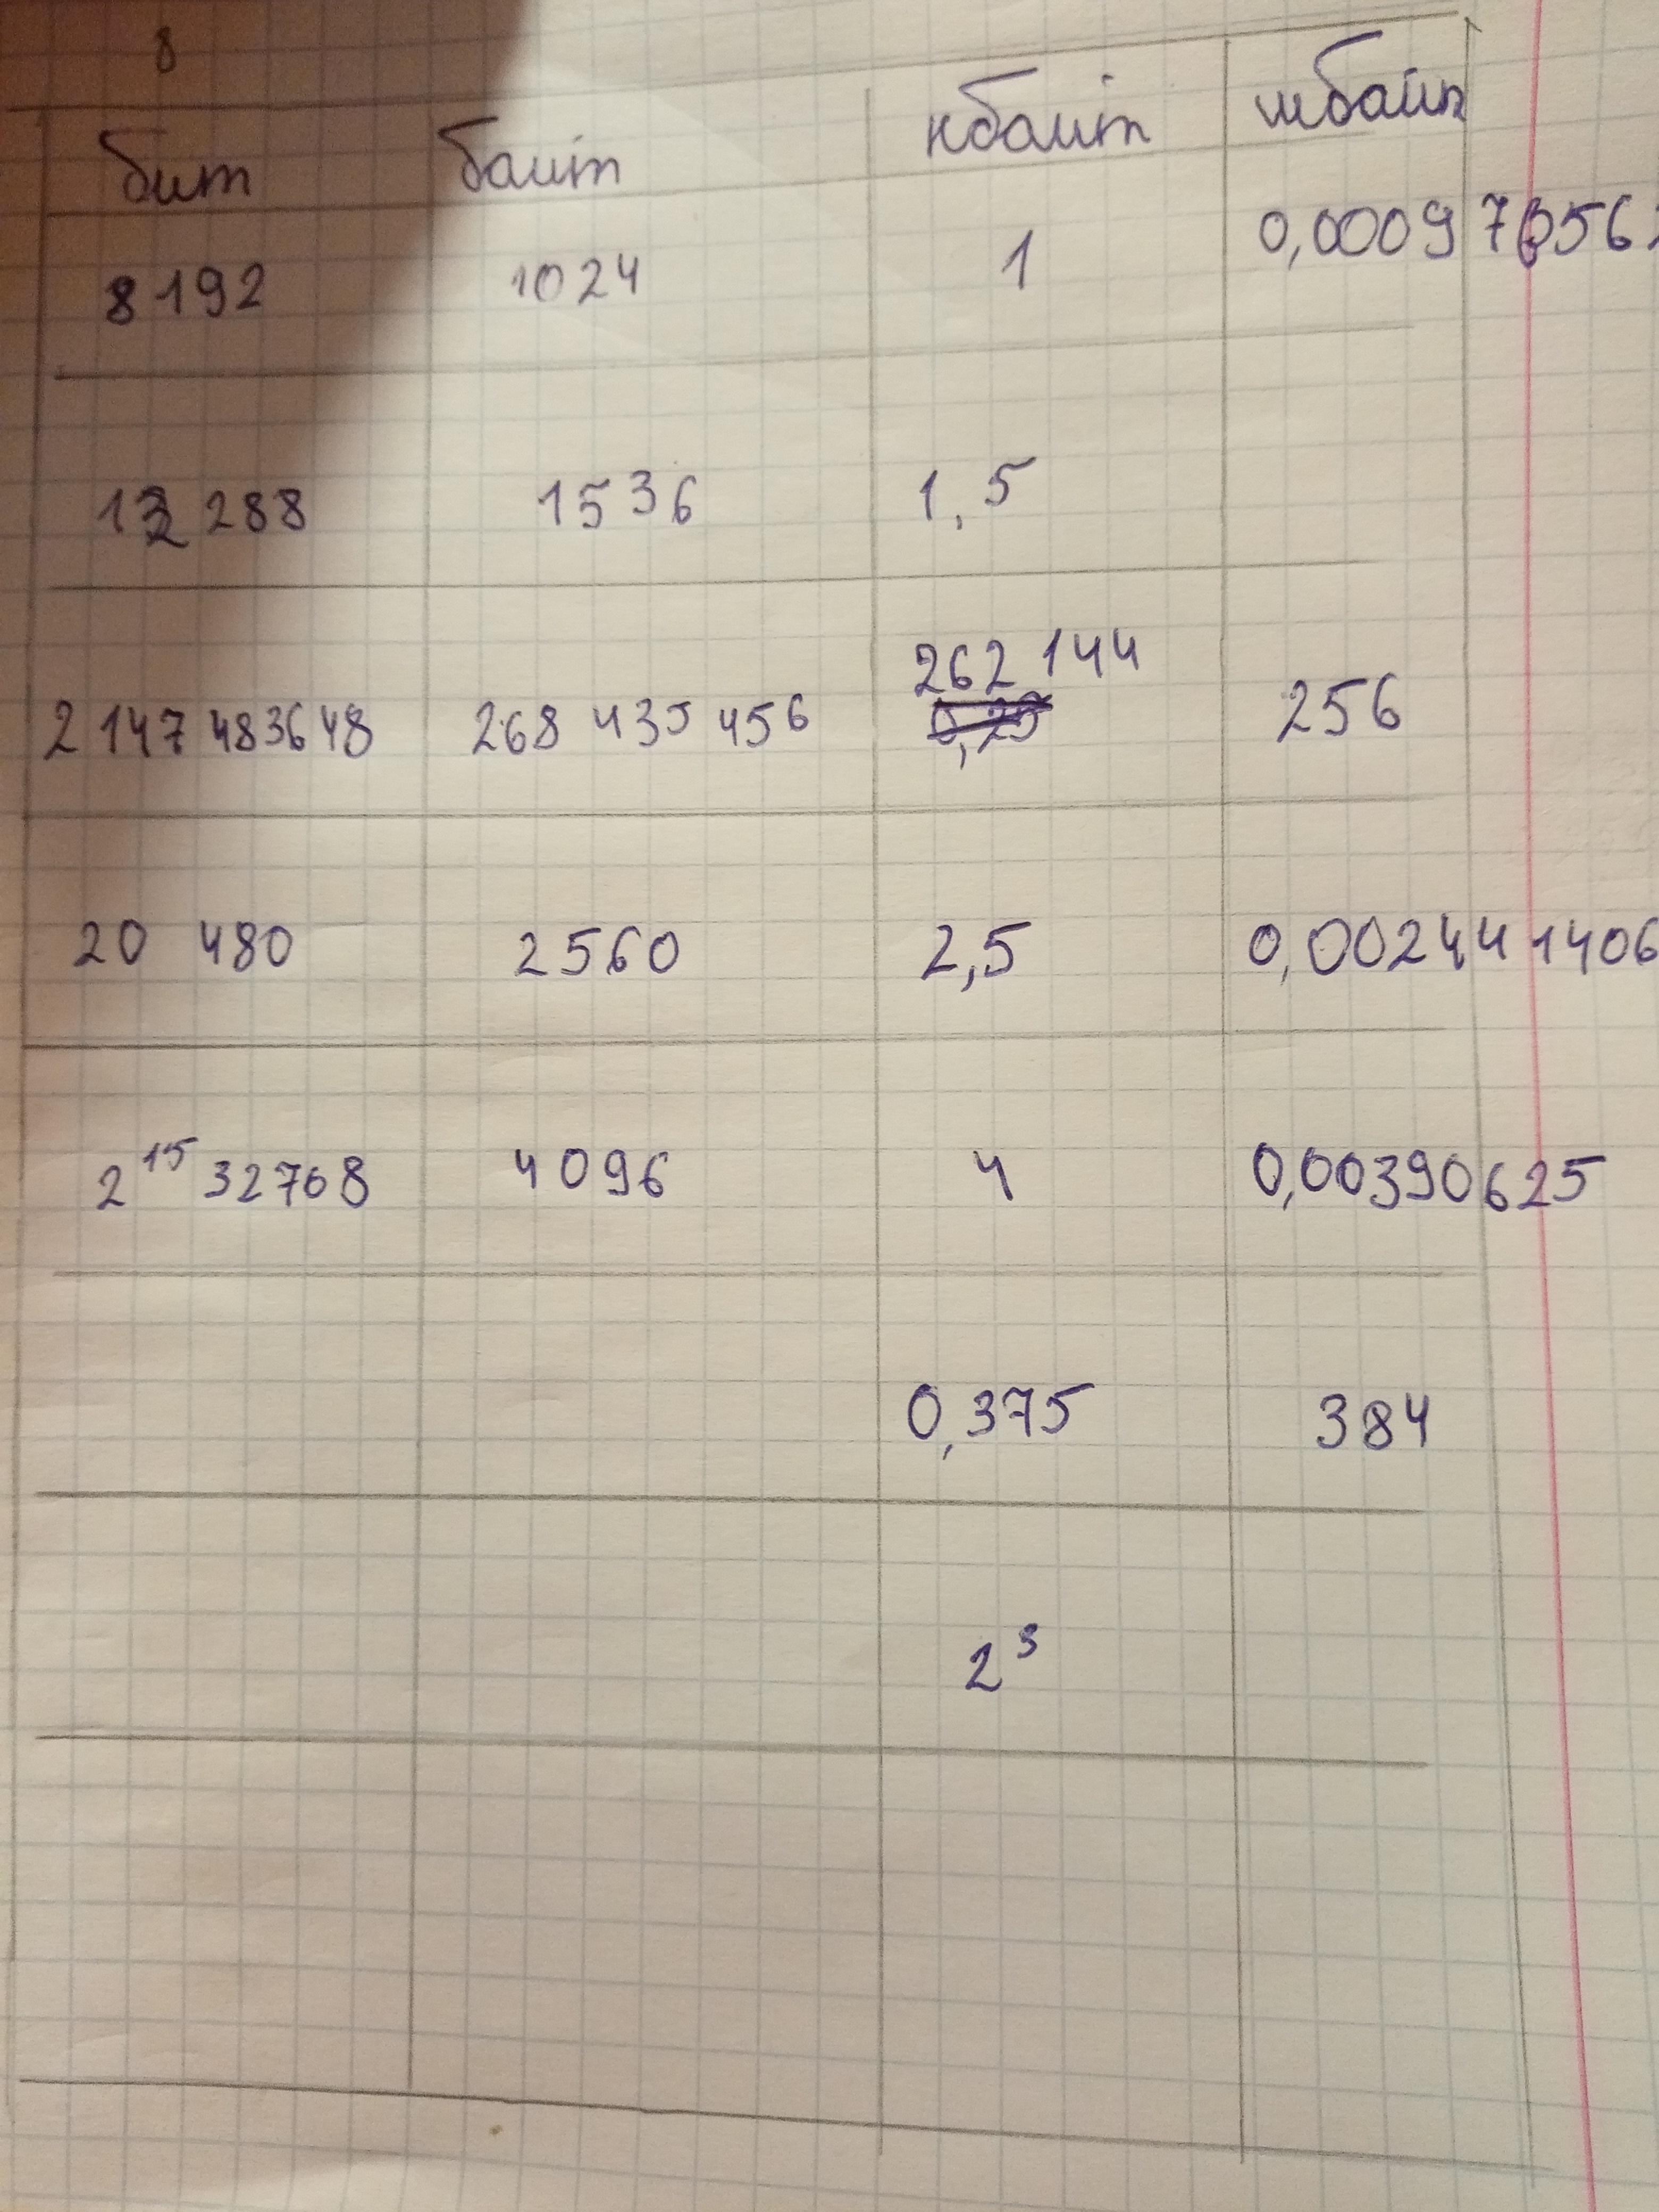 8
бит байт кбайт мбайт
8192 1024 1 0,000976562
12 288 1536 1,5
262 144
2 147 483648 268 435 456 0,25 256
20 480 2560 2,5 0,002441406
2¹⁵ 32768 4096 4 0,00390625
0,375 384
2³